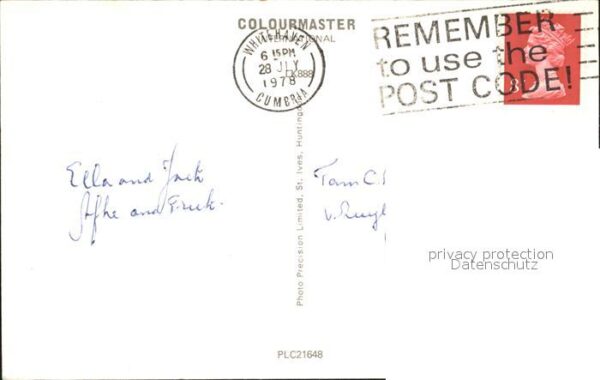 COLOURMASTER
INTERNATIONAL
WHITEHAVEN
6 15PM
28 JLY
1978
CUMBRIA
REMEMBER
to use the
POST CODE!
Ella and Jack
and
Tam C.
Photo Precision Limited, St. Ives, Hunting
privacy protection
Datenschutz
PLC21648